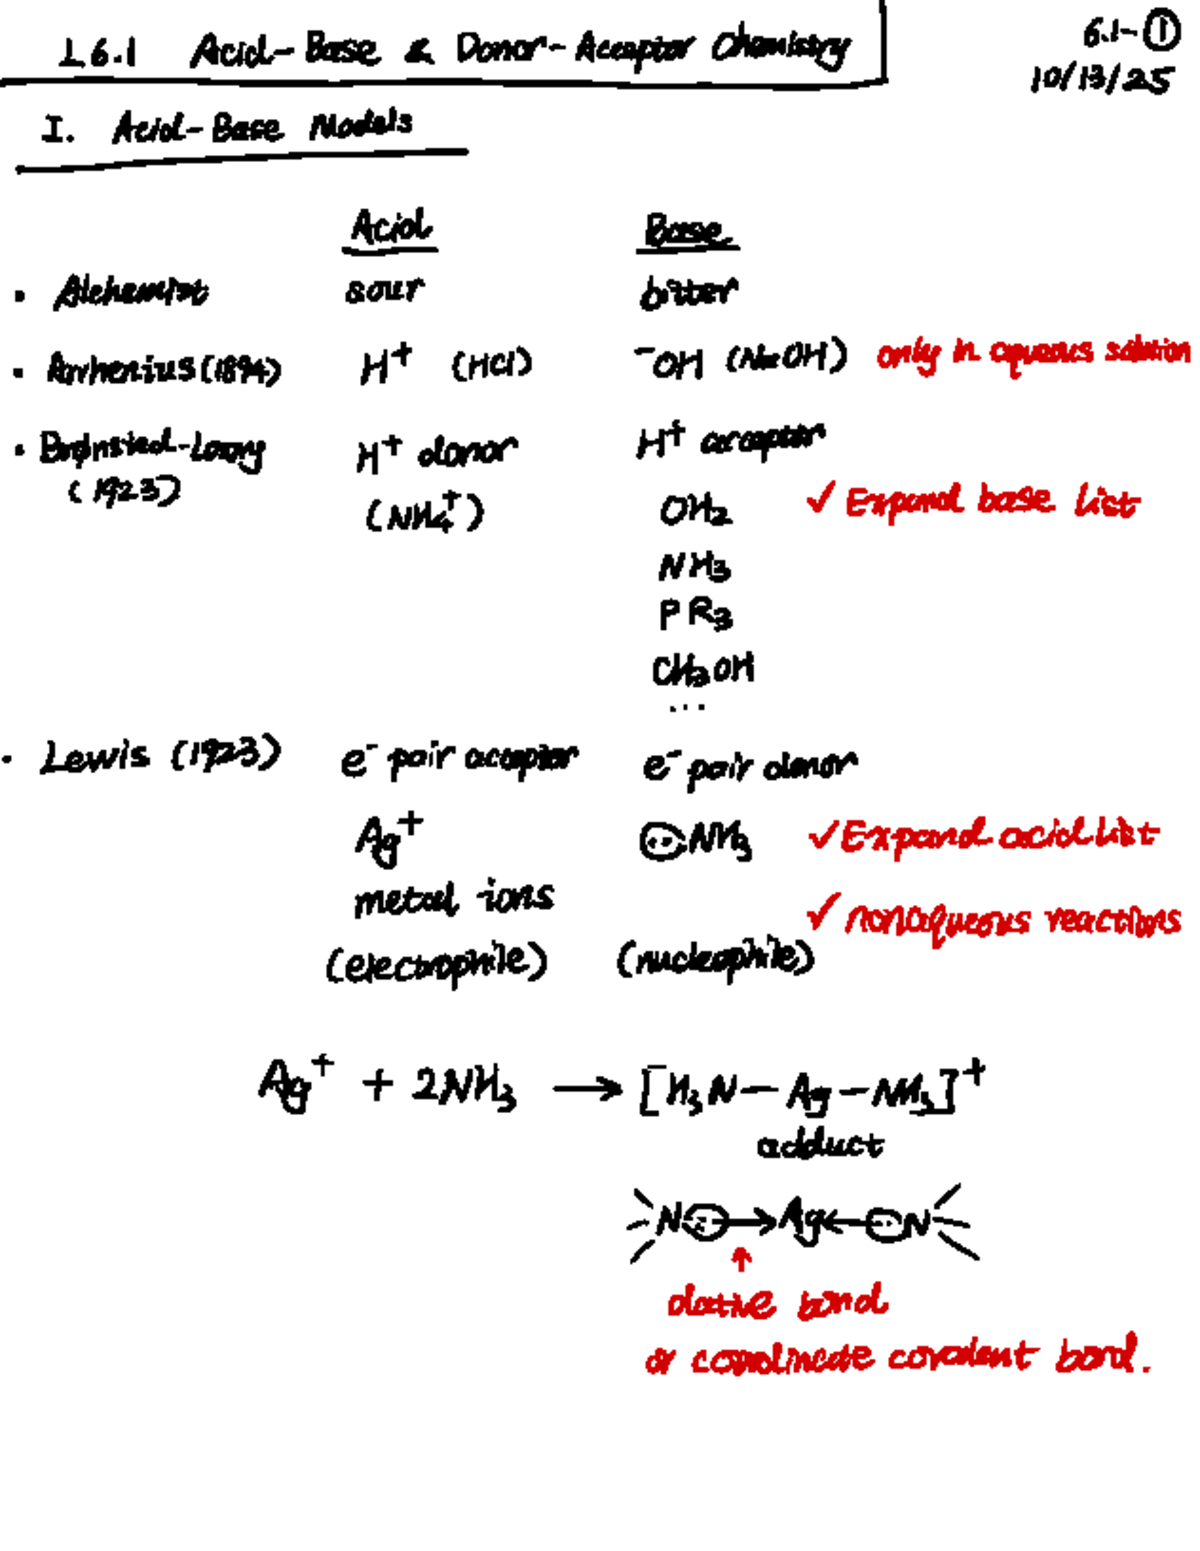 L6.1 Acid-Base & Donor-Acceptor Chemistry
6.1-①
10/13/25
I. Acid-Base Models
Acid Base
• Alchemist sour bitter
• Arrhenius (1894) H⁺ (HCl) ⁻OH (NaOH) only in aqueous solution
• Brønsted-Lowry H⁺ donor H⁺ acceptor
(1923) (NH₄⁺) OH₂ ✓ Expand base list
NH₃
PR₃
CH₃OH
...
• Lewis (1923) e⁻ pair acceptor e⁻ pair donor
Ag⁺ :NH₃ ✓ Expand acid list
metal ions ✓ nonaqueous reactions
(electrophile) (nucleophile)
Ag⁺ + 2NH₃ → [H₃N — Ag — NH₃]⁺
adduct
N: → Ag ← :N
↑
dative bond
or coordinate covalent bond.